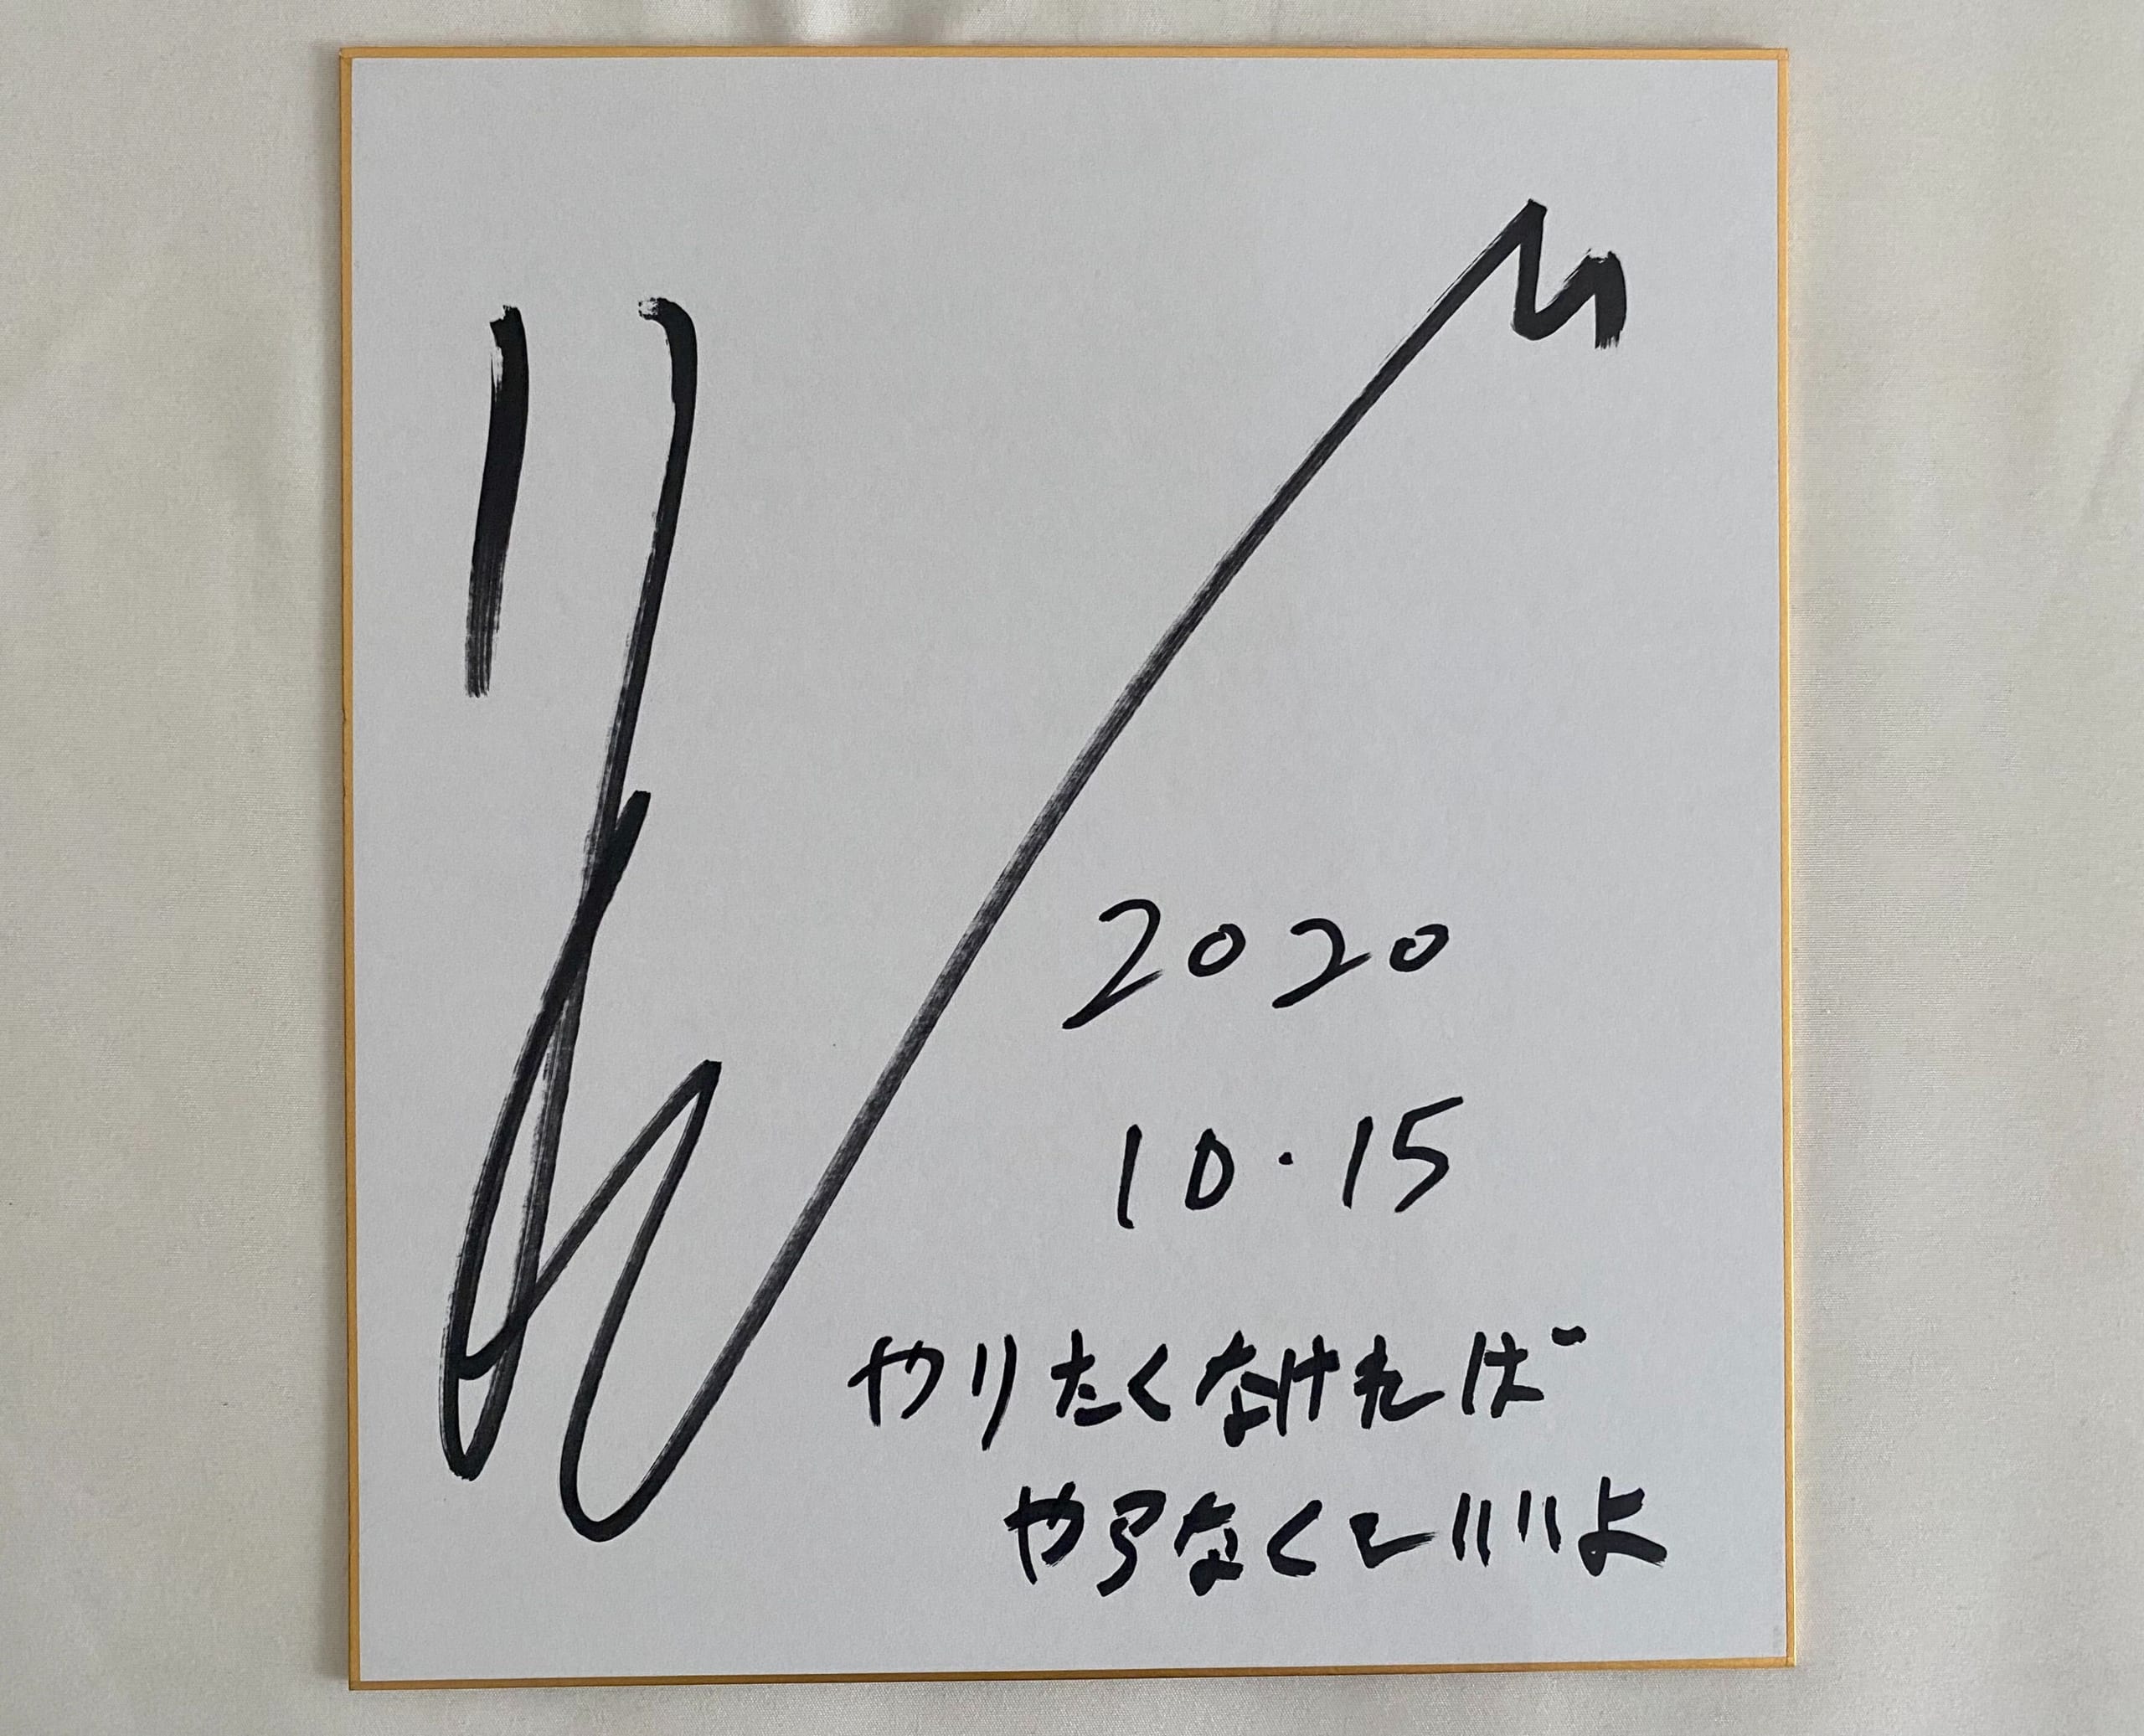 2020
10・15
やりたくなければ
やらなくていいよ